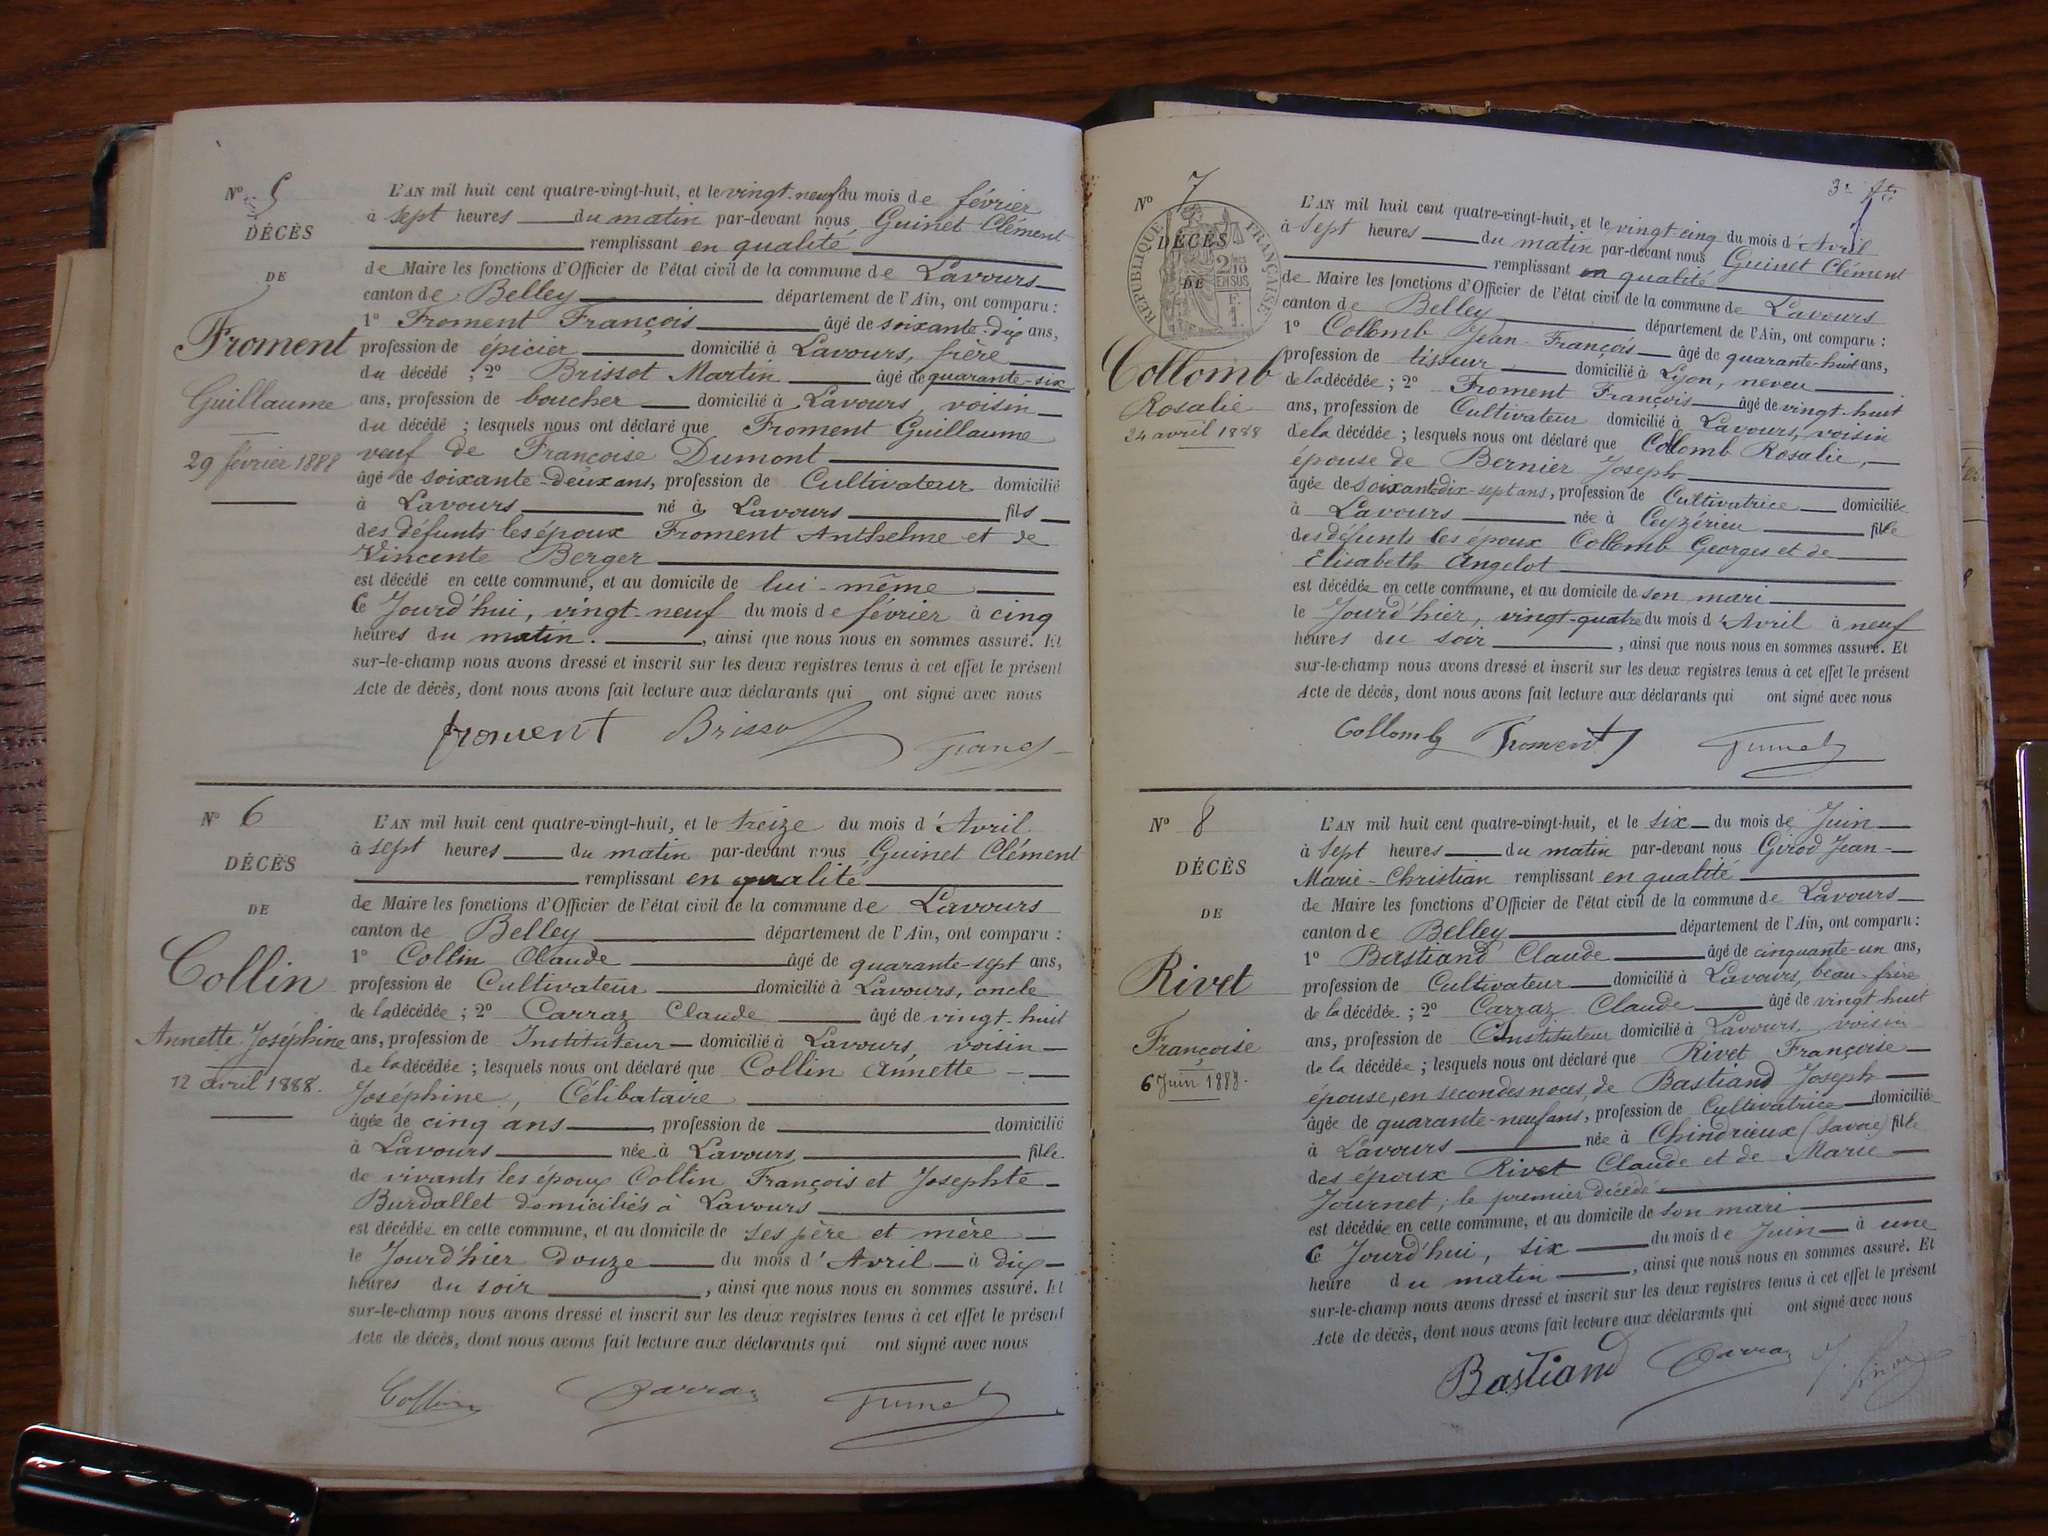 N° 5
DÉCÈS
DE
Froment
Guillaume
29 février 1888
L'AN mil huit cent quatre-vingt-huit, et le vingt-neuf du mois de février
à sept heures du matin par-devant nous Guinet Clément
remplissant en qualité
de Maire les fonctions d'Officier de l'état civil de la commune de Lavours
canton de Belley département de l'Ain, ont comparu :
1° Froment François âgé de soixante-dix ans,
profession de épicier domicilié à Lavours, frère
du décédé ; 2° Brissot Martin âgé de quarante-six
ans, profession de boucher domicilié à Lavours, voisin
du décédé ; lesquels nous ont déclaré que Froment Guillaume
veuf de Françoise Dumont
âgé de soixante-deux ans, profession de Cultivateur domicilié
à Lavours né à Lavours fils
des défunts les époux Froment Anthelme et de
Vincente Berger
est décédé en cette commune, et au domicile de lui-même
Ce Jourd'hui, vingt-neuf du mois de février à cinq
heures du matin. , ainsi que nous nous en sommes assuré. Et
sur-le-champ nous avons dressé et inscrit sur les deux registres tenus à cet effet le présent
Acte de décès, dont nous avons fait lecture aux déclarants qui ont signé avec nous
froment Brissot
N° 6
DÉCÈS
DE
Collin
Annette Joséphine
12 avril 1888.
L'AN mil huit cent quatre-vingt-huit, et le treize du mois d'Avril
à sept heures du matin par-devant nous Guinet Clément
remplissant en qualité
de Maire les fonctions d'Officier de l'état civil de la commune de Lavours
canton de Belley département de l'Ain, ont comparu :
1° Collin Claude âgé de quarante-sept ans,
profession de Cultivateur domicilié à Lavours, oncle
de la décédée ; 2° Carraz Claude âgé de vingt-huit
ans, profession de Instituteur domicilié à Lavours, voisin
de la décédée ; lesquels nous ont déclaré que Collin Annette
Joséphine, Célibataire
âgée de cinq ans, profession de domicilié
à Lavours née à Lavours fille
de vivants les époux Collin François et Josephte
Burdallet domiciliés à Lavours
est décédée en cette commune, et au domicile de ses père et mère
le Jourd'hier douze du mois d'Avril à dix
heures du soir , ainsi que nous nous en sommes assuré. Et
sur-le-champ nous avons dressé et inscrit sur les deux registres tenus à cet effet le présent
Acte de décès, dont nous avons fait lecture aux déclarants qui ont signé avec nous
Collin Carraz Guinet
N° 7
RÉPUBLIQUE FRANÇAISE
2/10
EN SUS
DÉCÈS
DE
Collomb
Rosalie
24 avril 1888
L'AN mil huit cent quatre-vingt-huit, et le vingt cinq du mois d'Avril
à sept heures du matin par-devant nous Guinet Clément
remplissant en qualité
de Maire les fonctions d'Officier de l'état civil de la commune de Lavours
canton de Belley département de l'Ain, ont comparu :
1° Collomb Jean-François âgé de quarante-huit ans,
profession de tisseur domicilié à Lyon, neveu
de la décédée ; 2° Froment François âgé de vingt-huit
ans, profession de Cultivateur domicilié à Lavours, voisin
de la décédée ; lesquels nous ont déclaré que Collomb Rosalie,
épouse de Bernier Joseph
âgée de soixante dix-sept ans, profession de Cultivatrice domiciliée
à Lavours née à Ceyzérieu fille
des défunts les époux Collomb Georges et de
Elisabeth Angelot
est décédée en cette commune, et au domicile de son mari
le Jourd'hier, vingt-quatre du mois d'Avril à neuf
heures du soir , ainsi que nous nous en sommes assuré. Et
sur-le-champ nous avons dressé et inscrit sur les deux registres tenus à cet effet le présent
Acte de décès, dont nous avons fait lecture aux déclarants qui ont signé avec nous
Collomb Froment Guinet
N° 8
DÉCÈS
DE
Rivet
Françoise
6 Juin 1888.
L'AN mil huit cent quatre-vingt-huit, et le six du mois de Juin
à sept heures du matin par-devant nous Girod Jean-
Marie-Christian remplissant en qualité
de Maire les fonctions d'Officier de l'état civil de la commune de Lavours
canton de Belley département de l'Ain, ont comparu :
1° Bastiand Claude âgé de cinquante-un ans,
profession de Cultivateur domicilié à Lavours, beau-frère
de la décédée ; 2° Carraz Claude âgé de vingt huit
ans, profession de Instituteur domicilié à Lavours, voisin
de la décédée ; lesquels nous ont déclaré que Rivet Françoise
épouse, en secondes noces, de Bastiand Joseph
âgée de quarante-neuf ans, profession de Cultivatrice domiciliée
à Lavours née à Chindrieux (Savoie) fille
des époux Rivet Claude et de Marie
Journet, le premier décédé
est décédée en cette commune, et au domicile de son mari
Ce Jourd'hui, six du mois de Juin à une
heure du matin , ainsi que nous nous en sommes assuré. Et
sur-le-champ nous avons dressé et inscrit sur les deux registres tenus à cet effet le présent
Acte de décès, dont nous avons fait lecture aux déclarants qui ont signé avec nous
Bastiand Carraz